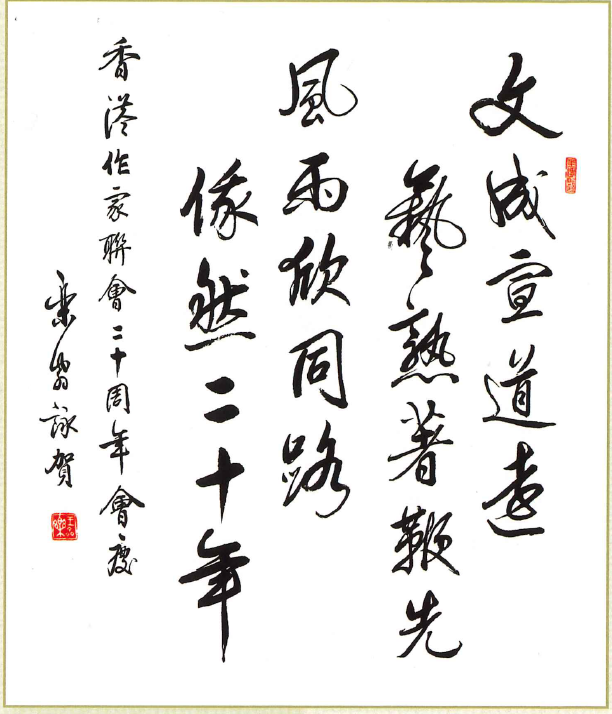 文成宣道遠
藝熟著鞭先
風雨欣同路
倏然二十年
香港作家聯會二十周年會慶
詠賀